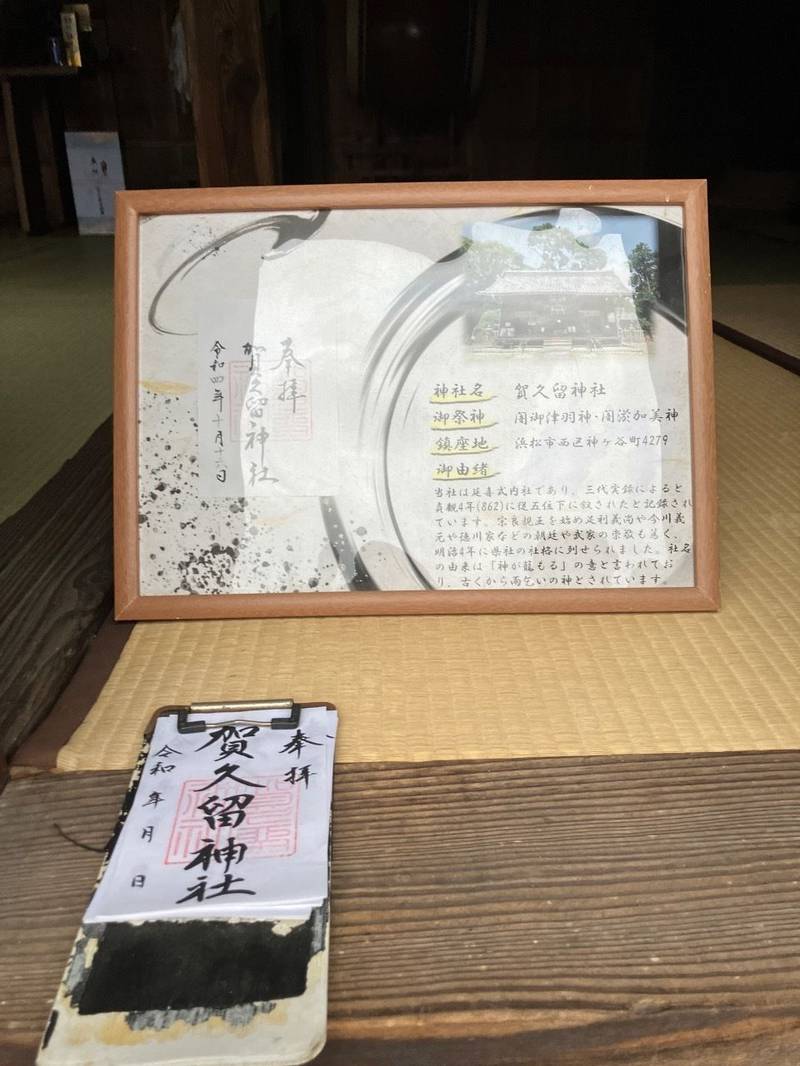 奉拝
賀久留神社
令和四年十月十六日
神社名　賀久留神社
御祭神　闇御津羽神・闇淤加美神
鎮座地　浜松市西区神ヶ谷町4279
御由緒
当社は延喜式内社であり、三代実録によると
貞観4年(862)に従五位下に叙されたと記録され
ています。宗良親王を始め足利義尚や今川義
元や徳川家などの朝廷や武家の崇敬も篤く、
明治4年に県社の社格に列せられました。社名
の由来は「神が籠もる」の意と言われてお
り、古くから雨乞いの神とされています。
奉拝
賀久留神社
令和 年 月 日